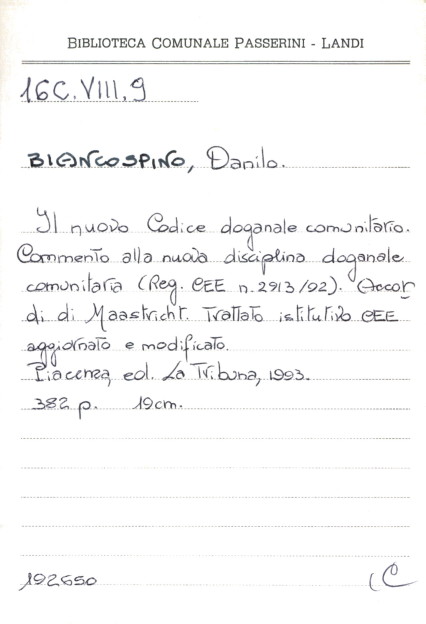 BIBLIOTECA COMUNALE PASSERINI - LANDI
16C.VIII.9
BIANCOSPINO, Danilo.
Il nuovo Codice doganale comunitario.
Commento alla nuova disciplina doganale
comunitaria (Reg. CEE n. 2913/92). Accor
di di Maastricht. Trattato istitutivo CEE
aggiornato e modificato.
Piacenza, ed. La Tribuna, 1993.
382 p. 19cm.
192650 (C